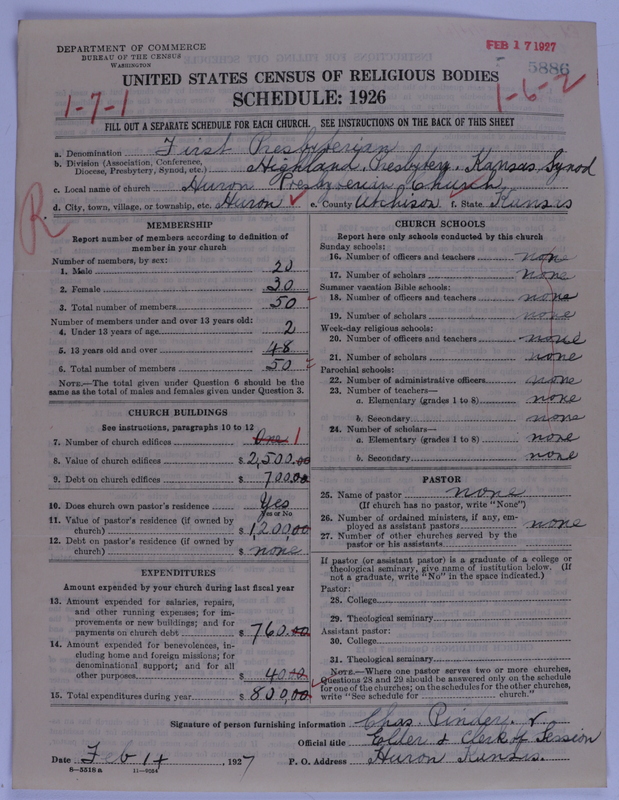 DEPARTMENT OF COMMERCE
BUREAU OF THE CENSUS
WASHINGTON
FEB 17 1927
5886
UNITED STATES CENSUS OF RELIGIOUS BODIES
SCHEDULE: 1926
1-7-1
1-6-2
FILL OUT A SEPARATE SCHEDULE FOR EACH CHURCH. SEE INSTRUCTIONS ON THE BACK OF THIS SHEET
a. Denomination First Presbyterian
b. Division (Association, Conference, Diocese, Presbytery, Synod, etc.) Highland Presbytery. Kansas Synod
c. Local name of church Huron Presbyterian Church
d. City, town, village, or township, etc. Huron e. County Atchison f. State Kansas
R
MEMBERSHIP
Report number of members according to definition of
member in your church
Number of members, by sex:
1. Male 20
2. Female 30
3. Total number of members 50
Number of members under and over 13 years old:
4. Under 13 years of age 2
5. 13 years old and over 48
6. Total number of members 50
NOTE.—The total given under Question 6 should be the
same as the total of males and females given under Question 3.
CHURCH BUILDINGS
See instructions, paragraphs 10 to 12
7. Number of church edifices One 1
8. Value of church edifices $ 2,500.00
9. Debt on church edifices $ 700.00
10. Does church own pastor's residence Yes
Yes or No
11. Value of pastor's residence (if owned by
church) $ 1,200.00
12. Debt on pastor's residence (if owned by
church) $ none
EXPENDITURES
Amount expended by your church during last fiscal year
13. Amount expended for salaries, repairs,
and other running expenses; for im-
provements or new buildings; and for
payments on church debt $ 760.00
14. Amount expended for benevolences, in-
cluding home and foreign missions; for
denominational support; and for all
other purposes $ 40.00
15. Total expenditures during year $ 800.00
CHURCH SCHOOLS
Report here only schools conducted by this church
Sunday schools:
16. Number of officers and teachers none
17. Number of scholars none
Summer vacation Bible schools:
18. Number of officers and teachers none
19. Number of scholars none
Week-day religious schools:
20. Number of officers and teachers none
21. Number of scholars none
Parochial schools:
22. Number of administrative officers none
23. Number of teachers—
a. Elementary (grades 1 to 8) none
b. Secondary none
24. Number of scholars—
a. Elementary (grades 1 to 8) none
b. Secondary none
PASTOR
25. Name of pastor none
(If church has no pastor, write "None")
26. Number of ordained ministers, if any, em-
ployed as assistant pastors none
27. Number of other churches served by the
pastor or his assistants
If pastor (or assistant pastor) is a graduate of a college or
theological seminary, give name of institution below. (If
not a graduate, write "No" in the space indicated.)
Pastor:
28. College
29. Theological seminary
Assistant pastor:
30. College
31. Theological seminary
NOTE.—Where one pastor serves two or more churches,
Questions 28 and 29 should be answered only on the schedule
for one of the churches; on the schedules for the other churches,
write "See schedule for church."
Signature of person furnishing information Chas. Pinder
Official title Elder & Clerk of Session
Date Feb 14, 1927 P. O. Address Huron Kansas.
8—5518 a 11—9254